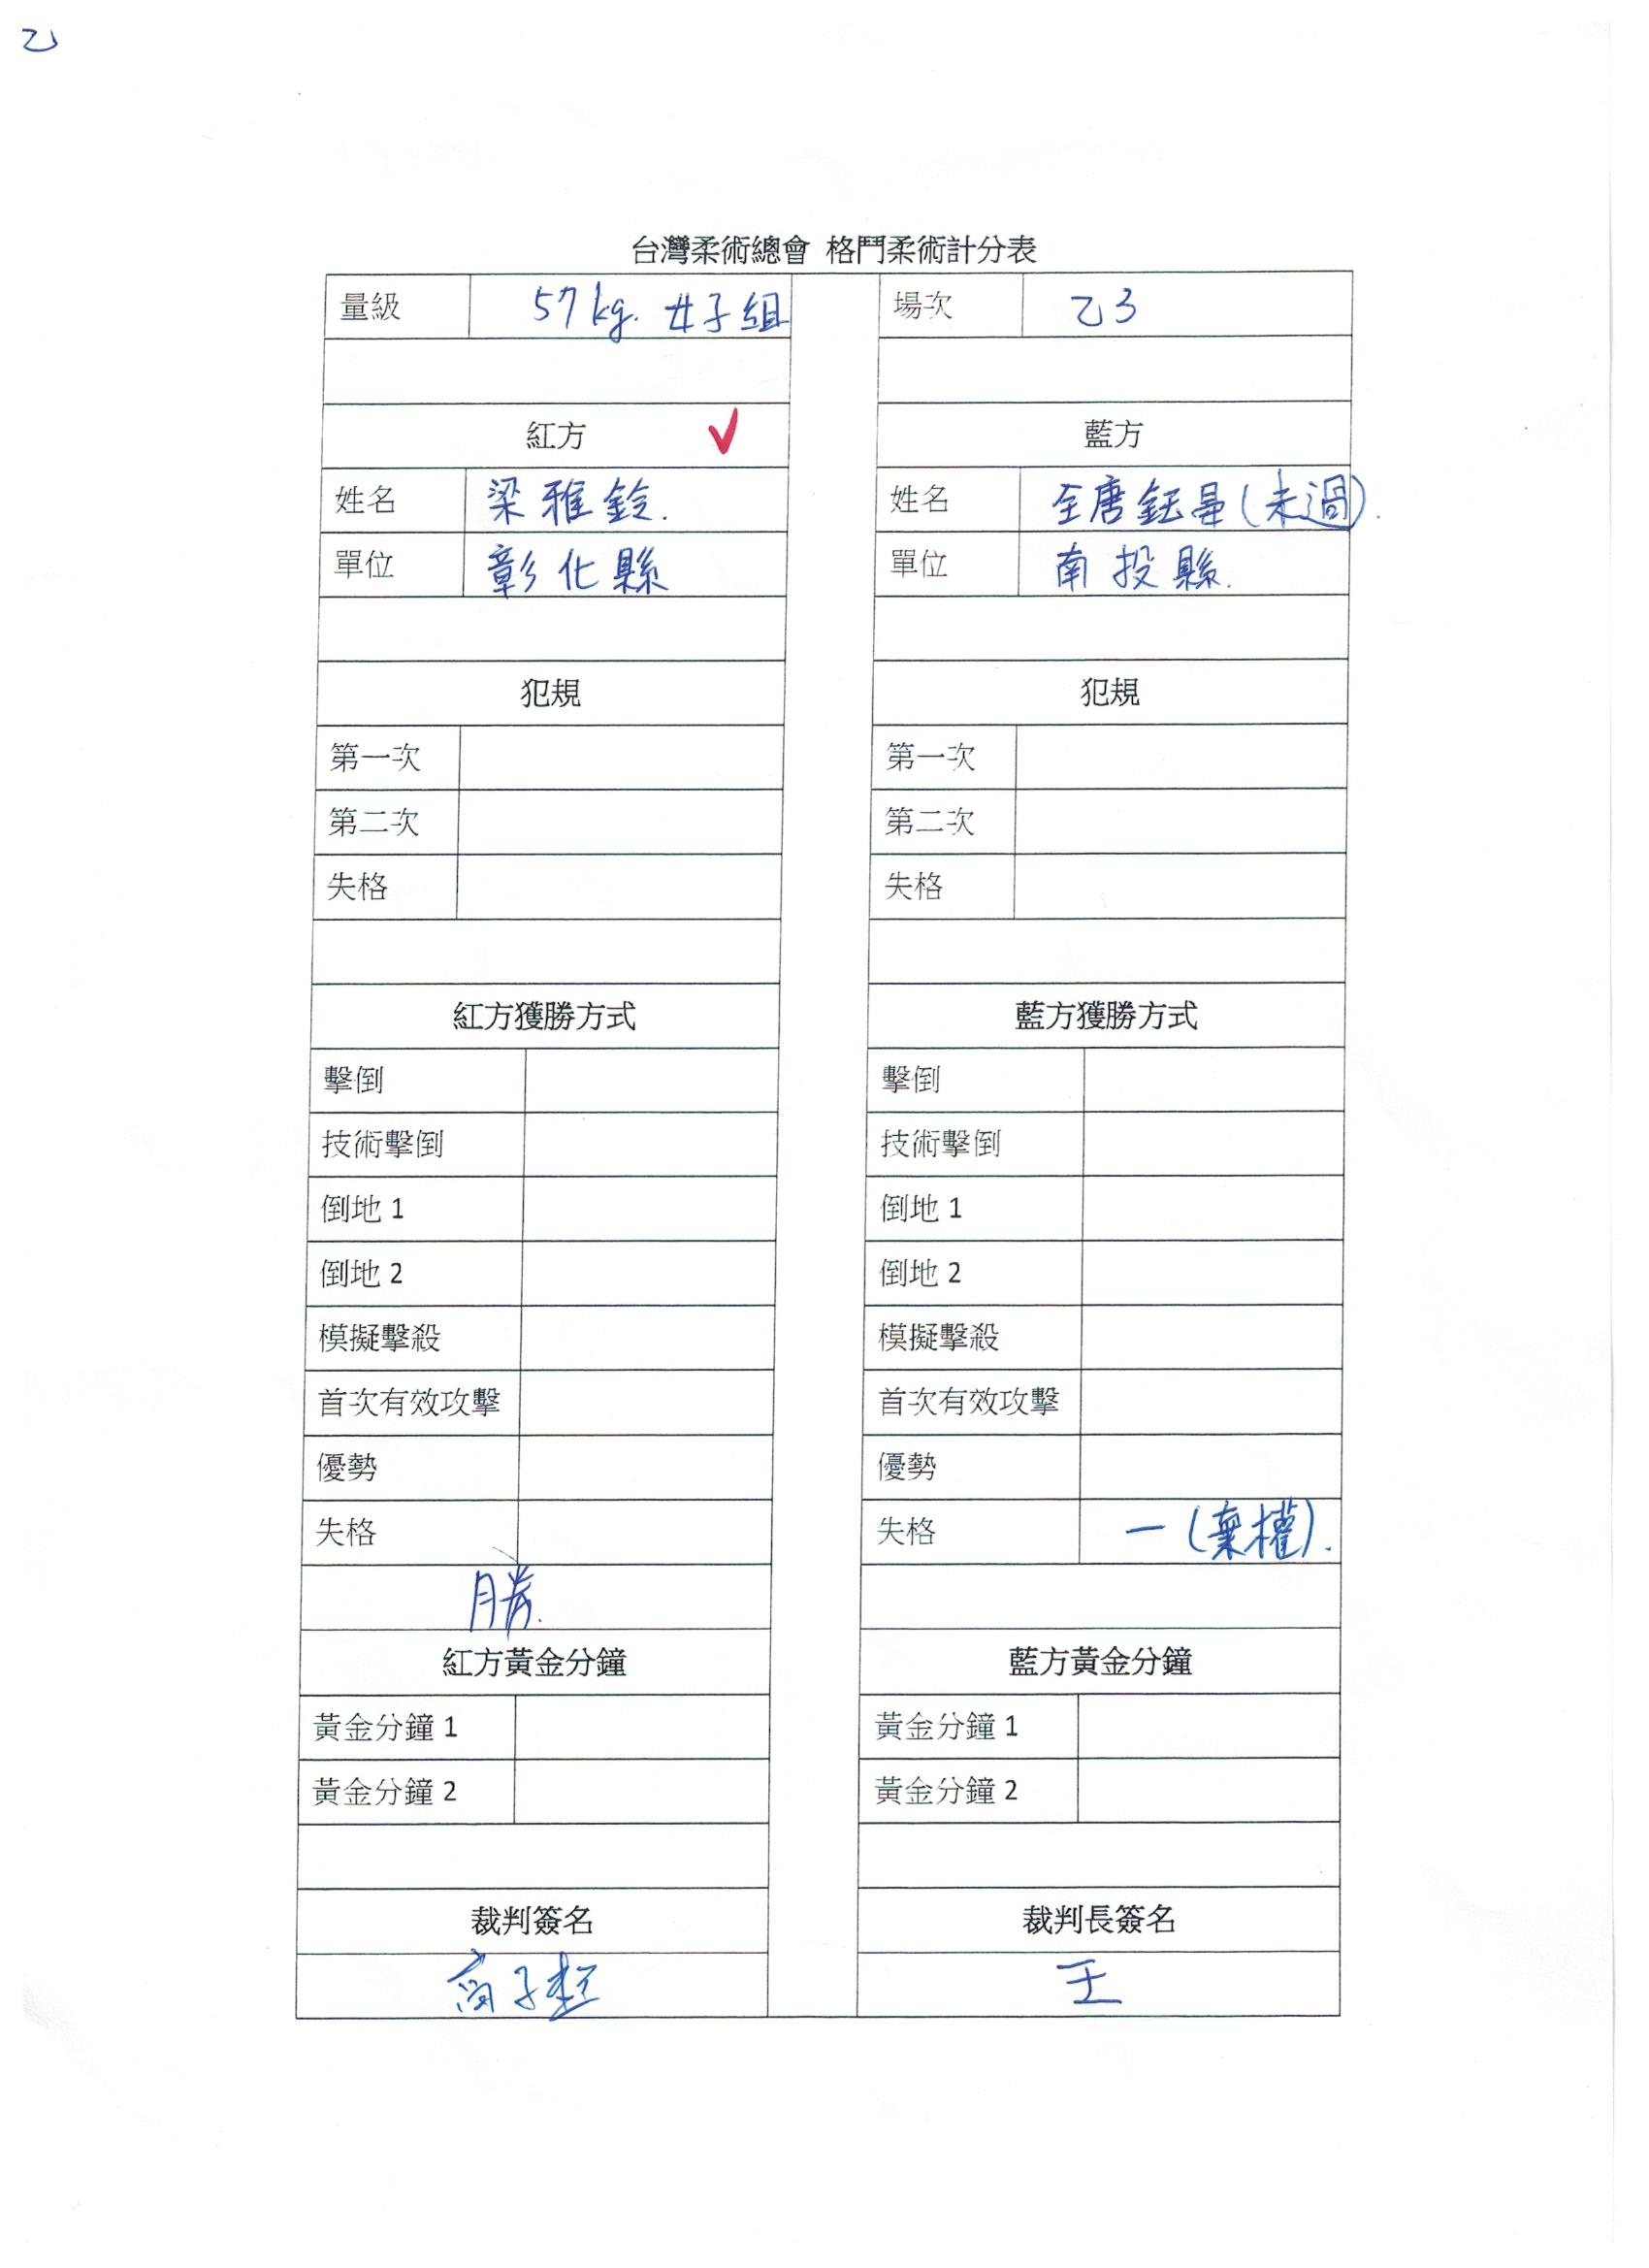 乙
台灣柔術總會 格鬥柔術計分表
量級 57kg. 女子組 場次 乙3
紅方 ✓ 藍方
姓名 梁雅鈴. 姓名 全唐鈺(未過).
單位 彰化縣 單位 南投縣.
犯規 犯規
第一次 第一次
第二次 第二次
失格 失格
紅方獲勝方式 藍方獲勝方式
擊倒 擊倒
技術擊倒 技術擊倒
倒地 1 倒地 1
倒地 2 倒地 2
模擬擊殺 模擬擊殺
首次有效攻擊 首次有效攻擊
優勢 優勢
失格 失格 一(棄權).
勝.
紅方黃金分鐘 藍方黃金分鐘
黃金分鐘 1 黃金分鐘 1
黃金分鐘 2 黃金分鐘 2
裁判簽名 裁判長簽名
王